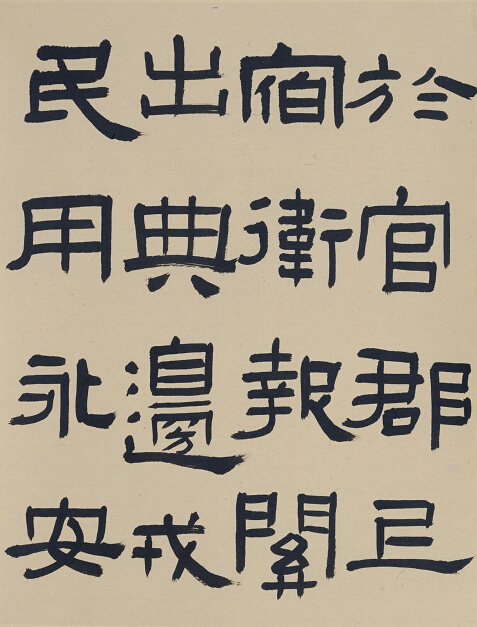 於官郡
宿衛報關
出典邊戎
民用永安